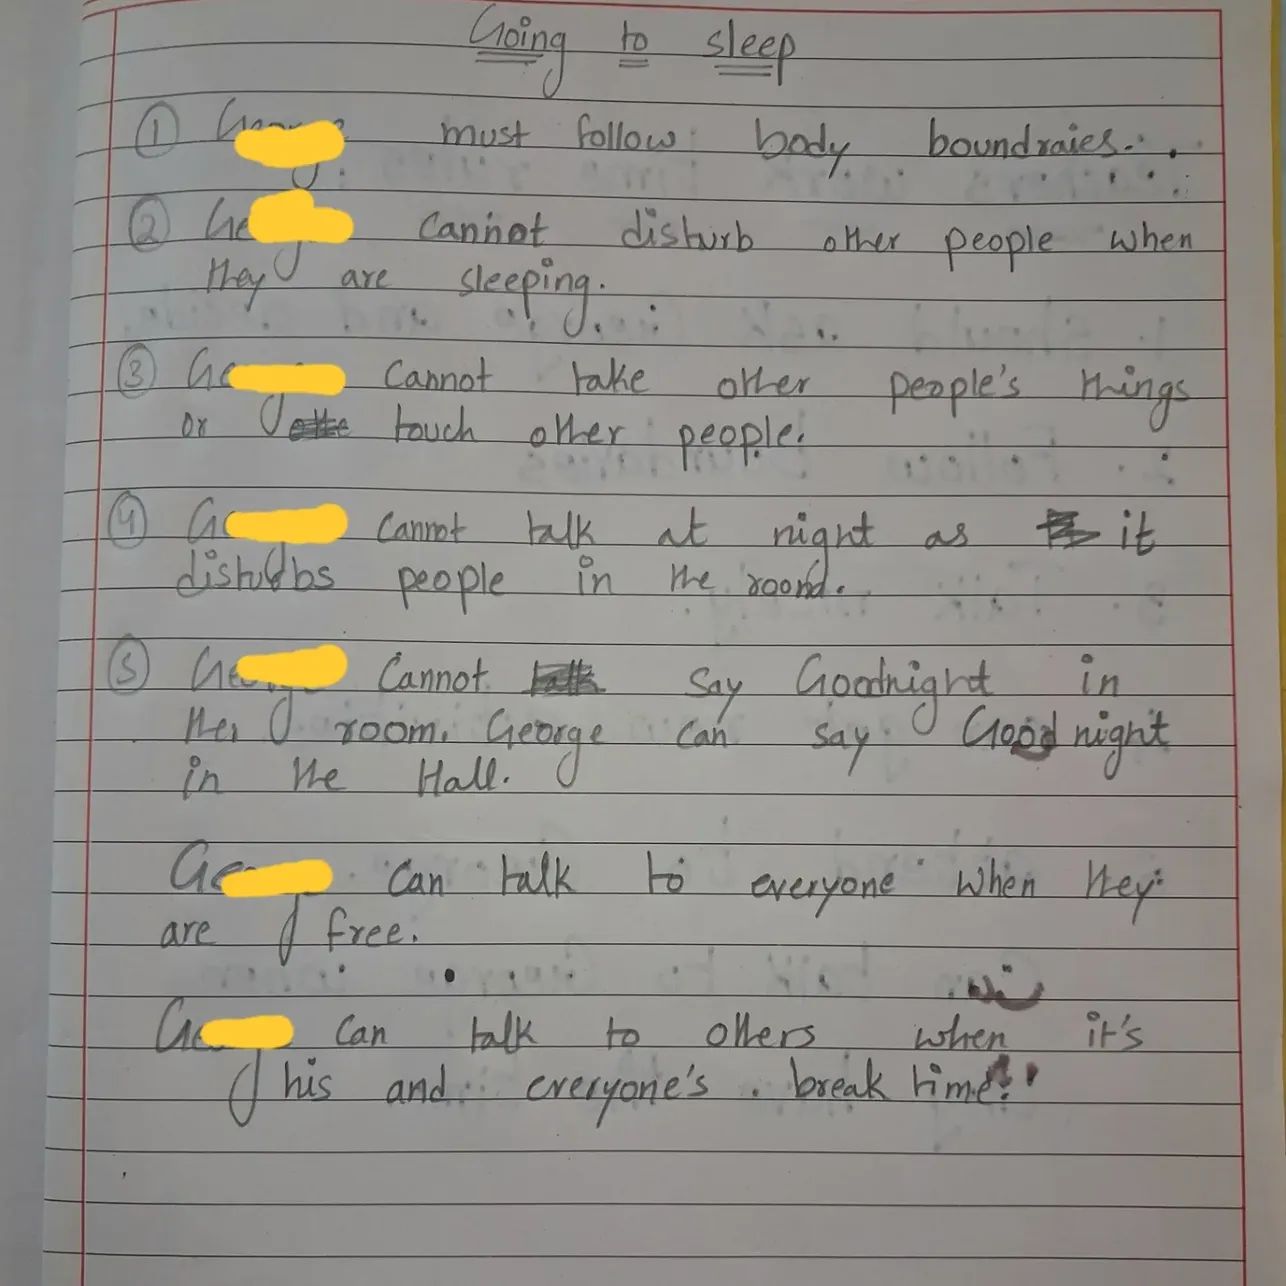 Going to sleep
① must follow body boundraies.
② cannot disturb other people when
they are sleeping.
③ cannot take other people's things
or touch other people.
④ cannot talk at night as it
disturbs people in the room.
⑤ Cannot say Goodnight in
their room. George can say Good night
in the Hall.
can talk to everyone when they
are free.
can talk to others when it's
his and everyone's break time!